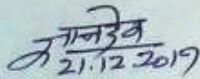 ज्ञानदेव
21.12.2019